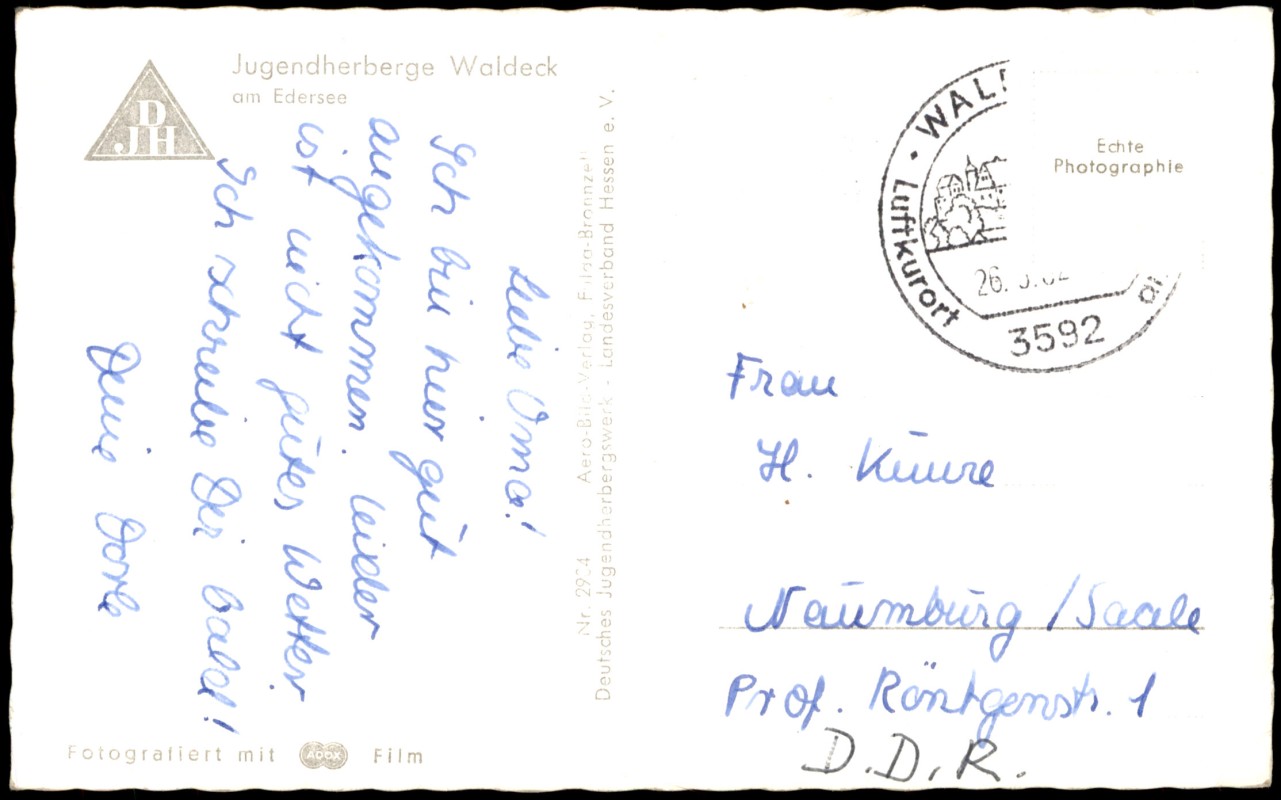 Jugendherberge Waldeck
am Edersee
DJH
Liebe Oma!
Ich bin hier gut
angekommen. Leider
ist nicht gutes Wetter
Ich schreibe Dir bald!
Deine Dorle
Fotografiert mit ADOX Film
Aero-Bild-Verlag,
Deutsches Jugendherbergswerk - Landesverband Hessen e. V.
Luftkurort
26.
3592
Echte
Photographie
Frau
H.
Naumburg /Saale
Prof. Röntgenstr. 1
D.D.R.